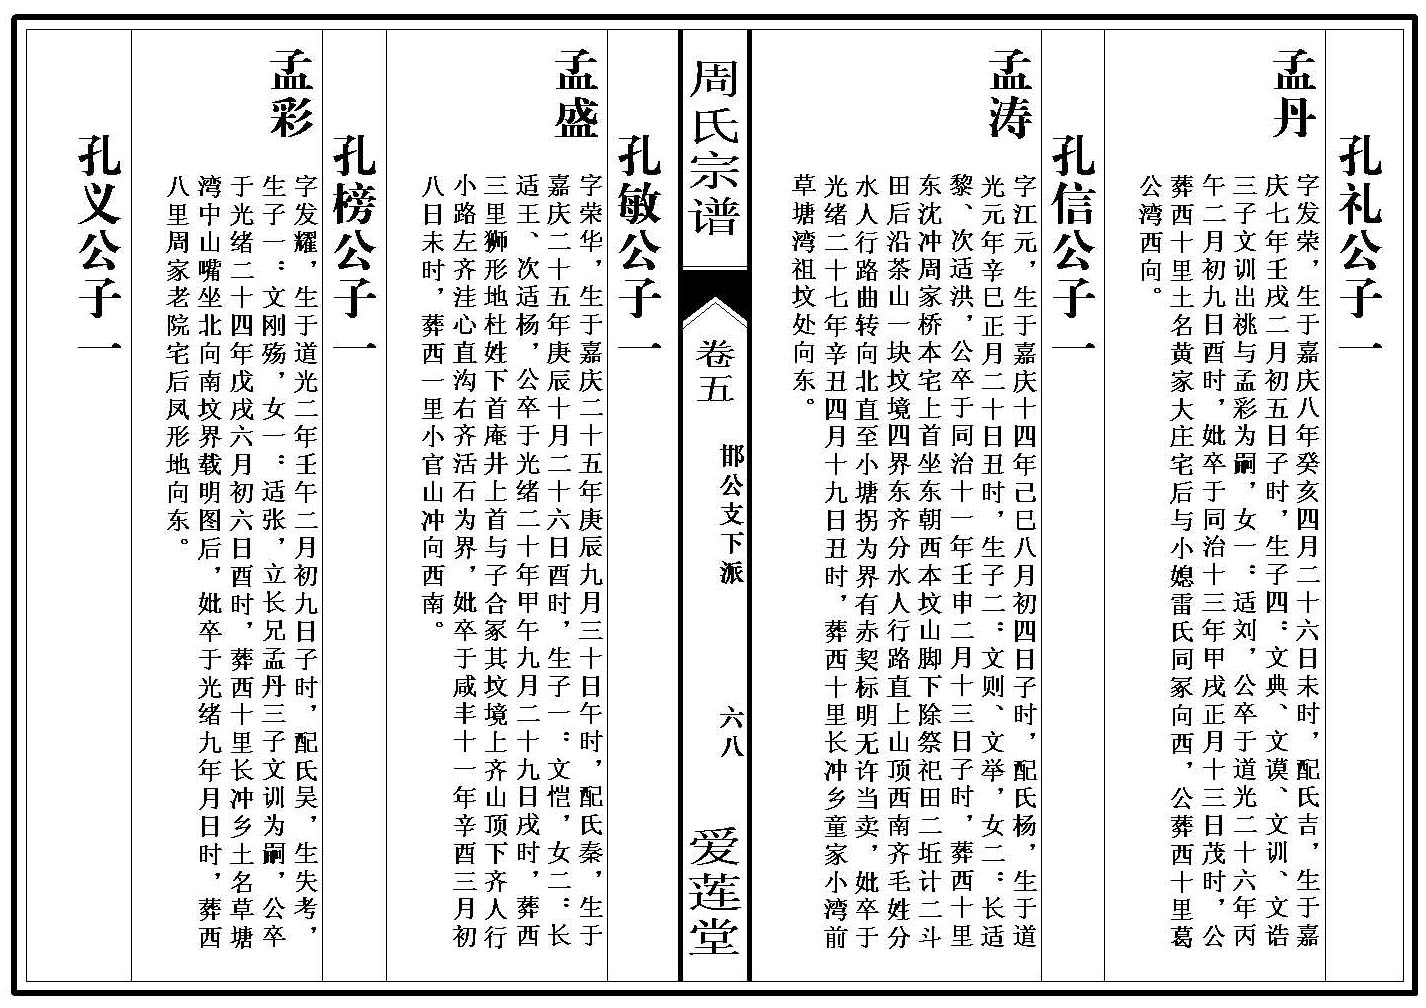 孔礼公子一
孟丹
字发荣，生于嘉庆八年癸亥四月二十六日未时，配氏吉，生于嘉
庆七年壬戌二月初五日子时，生子四：文典、文谟、文训、文诰
三子文训出祧与孟彩为嗣，女一：适刘，公卒于道光二十六年丙
午二月初九日酉时，妣卒于同治十三年甲戌正月十三日茂时，公
葬西十里土名黄家大庄宅后与小媳雷氏同冢向西，公葬西十里葛
公湾西向。
孔信公子一
孟涛
字江元，生于嘉庆十四年己巳八月初四日子时，配氏杨，生于道
光元年辛巳正月二十日丑时，生子二：文则、文举，女二：长适
黎、次适洪，公卒于同治十一年壬申二月十三日子时，葬西十里
东沈冲周家桥本宅上首坐东朝西本坟山脚下除祭祀田二坵计二斗
田后沿茶山一块坟境四界东齐分水人行路直上山顶西南齐毛姓分
水人行路曲转向北直至小塘拐为界有赤契标明无许当卖，妣卒于
光绪二十七年辛丑四月十九日丑时，葬西十里长冲乡童家小湾前
草塘湾祖坟处向东。
周氏宗谱
卷五
邯公支下派
六八
爱莲堂
孔敏公子一
孟盛
字荣华，生于嘉庆二十五年庚辰九月三十日午时，配氏秦，生于
嘉庆二十五年庚辰十月二十六日酉时，生子一：文恺，女二：长
适王、次适杨，公卒于光绪二十年甲午九月二十九日戌时，葬西
三里狮形地杜姓下首庵井上首与子合冢其坟境上齐山顶下齐人行
小路左齐洼心直沟右齐活石为界，妣卒于咸丰十一年辛酉三月初
八日未时，葬西一里小官山冲向西南。
孔榜公子一
孟彩
字发耀，生于道光二年壬午二月初九日子时，配氏吴，生失考，
生子一：文刚殇，女一：适张，立长兄孟丹三子文训为嗣，公卒
于光绪二十四年戊戌六月初六日酉时，葬西十里长冲乡土名草塘
湾中山嘴坐北向南坟界载明图后，妣卒于光绪九年月日时，葬西
八里周家老院宅后凤形地向东。
孔义公子一